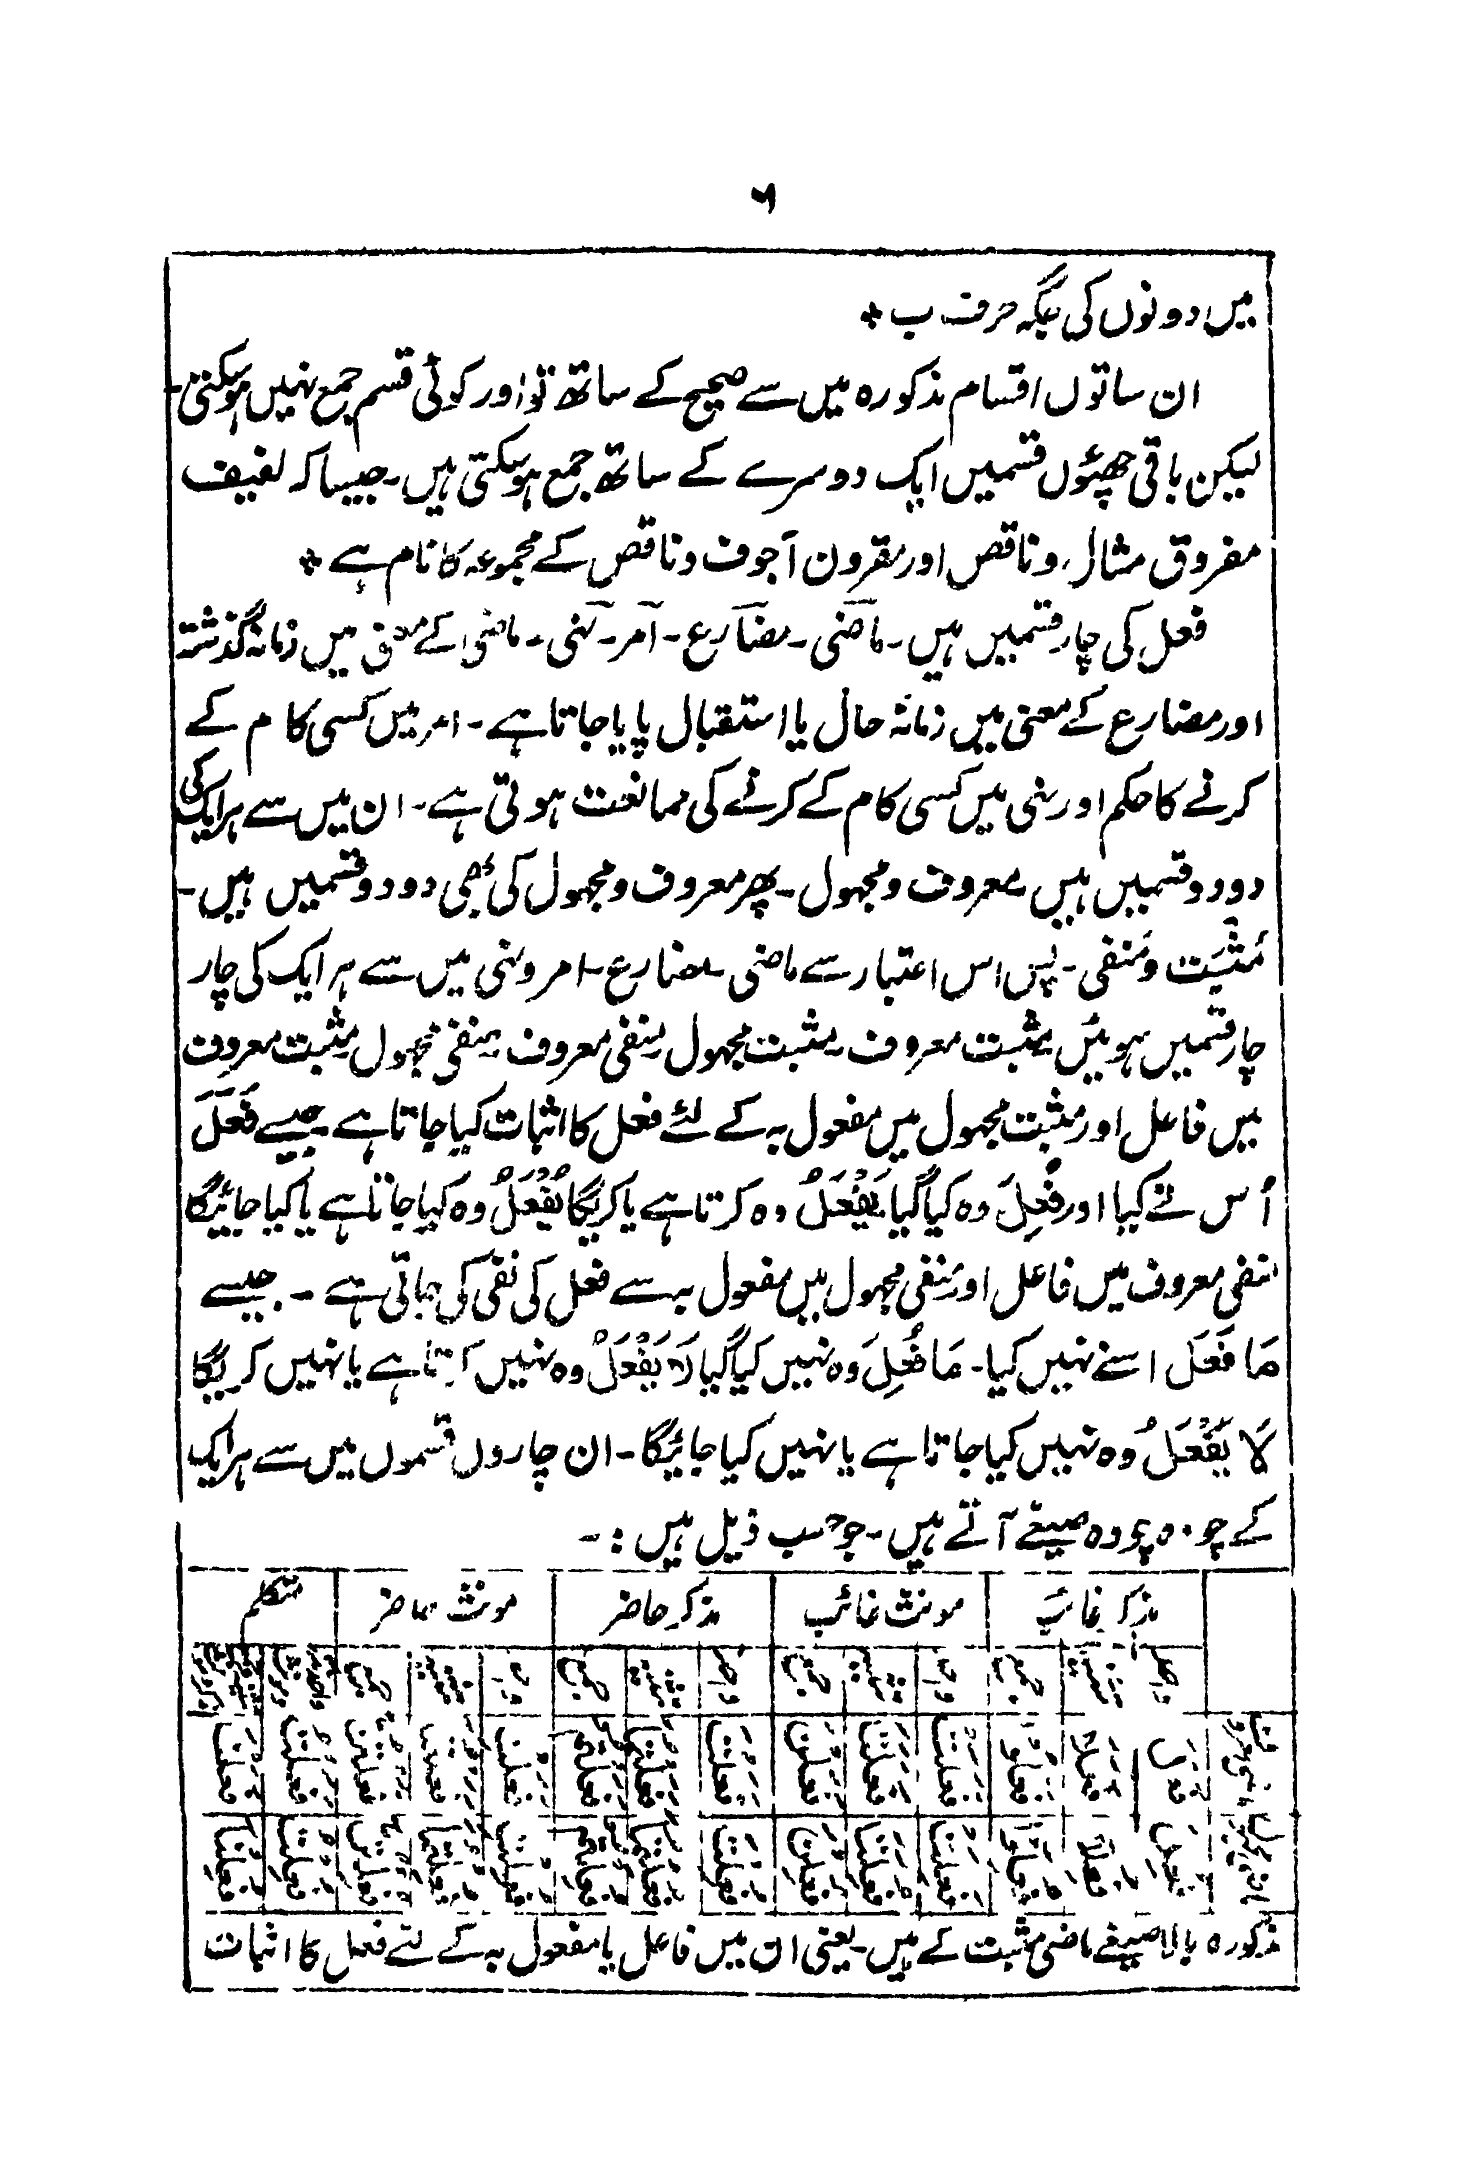 ۶
میں دونوں کی جگہ حرف ب *
ان ساتوں اقسام مذکورہ میں سے صحیح کے ساتھ تو اور کوئی قسم جمع نہیں ہوسکتی۔
لیکن باقی چھئوں قسمیں ایک دوسرے کے ساتھ جمع ہوسکتی ہیں۔ جیسا کہ لفیف
مفروق مثال و ناقص اور مقرون اجوف و ناقص کے مجموعہ کا نام ہے *
فعل کی چار قسمیں ہیں۔ ماضی۔ مضارع۔ امر۔ نہی۔ ماضی کے معنی میں زمانہ گذشتہ
اور مضارع کے معنی میں زمانہ حال یا استقبال پایا جاتا ہے۔ امر میں کسی کام کے
کرنے کا حکم اور نہی میں کسی کام کے کرنے کی ممانعت ہوتی ہے۔ ان میں سے ہر ایک کی
دو دو قسمیں ہیں معروف و مجہول۔ پھر معروف و مجہول کی بھی دو دو قسمیں ہیں۔
مُثْبَت و مَنفی۔ پس اس اعتبار سے ماضی۔ مضارع۔ امر و نہی میں سے ہر ایک کی چار
چار قسمیں ہوئیں مثبت معروف۔ مثبت مجہول۔ منفی معروف۔ منفی مجہول مثبت معروف
میں فاعل اور مثبت مجہول میں مفعول بہ کے لئے فعل کا اثبات کیا جاتا ہے جیسے فَعَلَ
اُس نے کیا اور فُعِلَ وہ کیا گیا یَفْعَلُ وہ کرتا ہے یا کریگا یُفْعَلُ وہ کیا جاتا ہے یا کیا جائیگا
منفی معروف میں فاعل اور منفی مجہول میں مفعول بہ سے فعل کی نفی کی جاتی ہے۔ جیسے
مَا فَعَلَ اسنے نہیں کیا۔ مَا فُعِلَ وہ نہیں کیا گیا لَا یَفْعَلُ وہ نہیں کرتا ہے یا نہیں کریگا
لَا یُفْعَلُ وہ نہیں کیا جاتا ہے یا نہیں کیا جائیگا۔ ان چاروں قسموں میں سے ہر ایک
کے چودہ چودہ صیغے آتے ہیں۔ جو حسب ذیل ہیں :۔
مذکر غائب مونث غائب مذکر حاضر مونث حاضر متکلم
واحد تثنیہ جمع واحد تثنیہ جمع واحد تثنیہ جمع واحد تثنیہ جمع
فَعَلَ فَعَلَا فَعَلُوْا فَعَلَتْ فَعَلَتَا فَعَلْنَ فَعَلْتَ فَعَلْتُمَا فَعَلْتُمْ فَعَلْتِ فَعَلْتُمَا فَعَلْتُنَّ فَعَلْتُ فَعَلْنَا
فُعِلَ فُعِلَا فُعِلُوْا فُعِلَتْ فُعِلَتَا فُعِلْنَ فُعِلْتَ فُعِلْتُمَا فُعِلْتُمْ فُعِلْتِ فُعِلْتُمَا فُعِلْتُنَّ فُعِلْتُ فُعِلْنَا
مذکورہ بالا صیغے ماضی مثبت کے ہیں۔ یعنی ان میں فاعل یا مفعول بہ کے لئے فعل کا اثبات